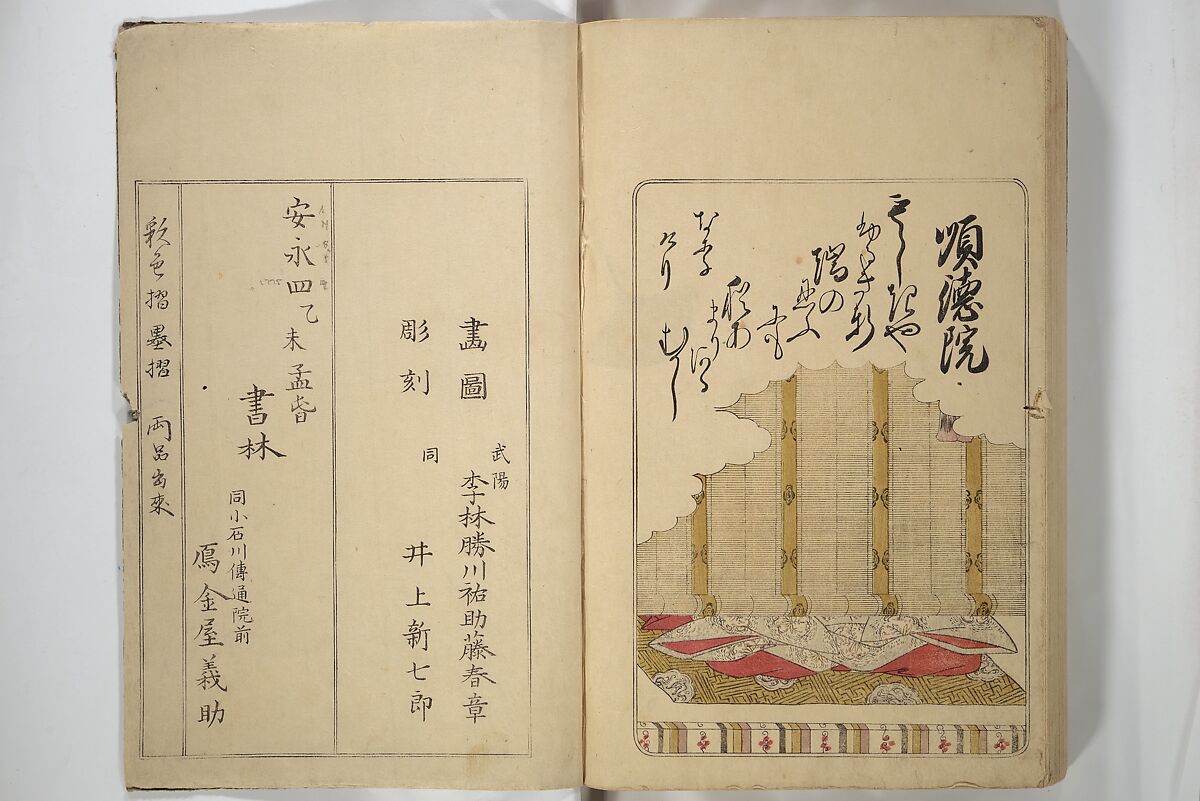 順德院
もゝしきや
ふるき軒
端の
忍ふ
にも
猶あ
まりある
むかし
なり
けり
武陽
畫圖 李林勝川祐助藤春章
同
彫刻 井上新七郎
安永四乙未孟春
書林
同小石川傳通院前
鴈金屋義助
彩色摺墨摺 両品出來